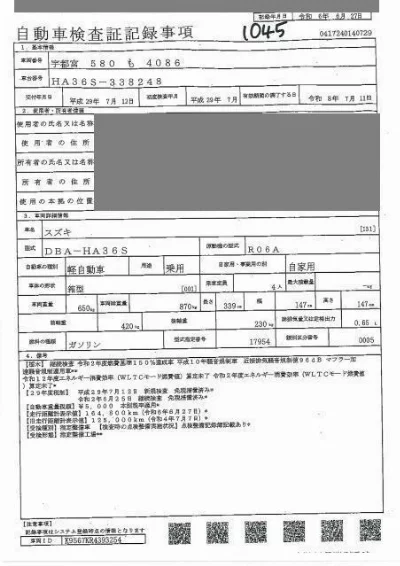 記録年月日 令和 6年 6月27日
自動車検査証記録事項
1045
0417240140729
1. 基本情報
車両番号 宇都宮 580 も 4086
車台番号 HA36S-338248
交付年月日 平成 29年 7月 12日 初度検査年月 平成 29年 7月 有効期間の満了する日 令和 8年 7月 11日
2. 使用者・所有者情報
使用者の氏名又は名称
使用者の住所
所有者の氏名又は名称
所有者の住所
使用の本拠の位置
3. 車両詳細情報
車名 スズキ [181]
型式 DBA-HA36S 原動機の型式 R06A
自動車の種別 軽自動車 用途 乗用 自家用・事業用の別 自家用
車体の形状 箱型 [001] 乗車定員 4人 最大積載量 -kg
車両重量 650kg 車両総重量 870kg 長さ 339cm 幅 147cm 高さ 147cm
前軸重 420kg 後軸重 230kg 総排気量又は定格出力 0.65 L
燃料の種類 ガソリン 型式指定番号 17954 類別区分番号 0005
4. 備考
継続検査 令和2年度燃費基準
平成10年騒音規制車 近接排気騒音規制値96dB マフラー加速騒音規制適用車
令和12年度エネルギー消費効率(WLTCモード燃費値)算定未了 令和2年度エネルギー消費効率(WLTCモード燃費値)算定未了
平成29年7月12日 新規検査
継続検査
[自動車重量税額] ¥5,000
[走行距離計表示値] 164,800km (令和6年6月27日)
[旧走行距離計表示値] 125,000km (令和4年7月7日)
[受検種別] 指定整備車 [検査時の点検整備実施状況] 点検整備記録簿記載あり
[受検形態] 指定整備工場
[注意事項]
記録事項はシステム登録時点の情報となります
車両ID K9567KR4393254